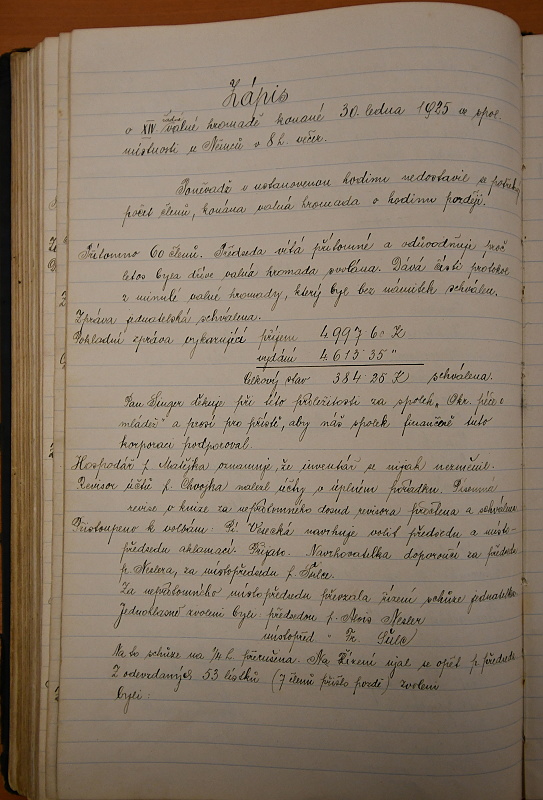 Zápis
o XIV. řádné valné hromadě konané 30. ledna 1925 ve spol.
místnosti u Němců v 8 h. večer.
Poněvadž v ustanovenou hodinu nedostavil se potřebný
počet členů, konána valná hromada o hodinu později.
Přítomno 60 členů. Předseda vítá přítomné a odůvodňuje proč
letos byla dříve valná hromada svolána. Dává čísti protokol
z minulé valné hromady, který byl bez námitek schválen.
Zpráva jednatelská schválena.
Pokladní zpráva vykazující příjem 4.997 60 K
vydání 4.613 35 "
Celkový stav 384 25 K schválena.
Pan Singer děkuje při této příležitosti za spolek „Okr. péče o
mládež" a prosí pro příště, aby náš spolek finančně tuto
korporaci podporoval.
Hospodář p. Matějka oznamuje, že inventář se nijak nezměnil.
Revisor účtů p. Chvojka nalezl účty v úplném pořádku. Písemná
revise v knize za nepřítomného dosud revisora přečtena a schválena.
Přistoupeno k volbám: Pí. Veselá navrhuje volit předsedu a místo-
předsedu aklamací. Přijato. Navrhovatelka doporučí za předsedu
p. Neslera, za místopředsedu p. Šulce.
Za nepřítomného místopředsedu převzala řízení schůze jednatelka.
Jednohlasně zvoleni byli: předsedou p. Alois Nesler
místopřed " Fr. Šulc
Na to schůze na 1/4 h. přerušena. Na řízení ujal se opět p. předseda.
Z odevzdaných 53 lístků (7 členů přišlo pozdě) zvoleni
byli: